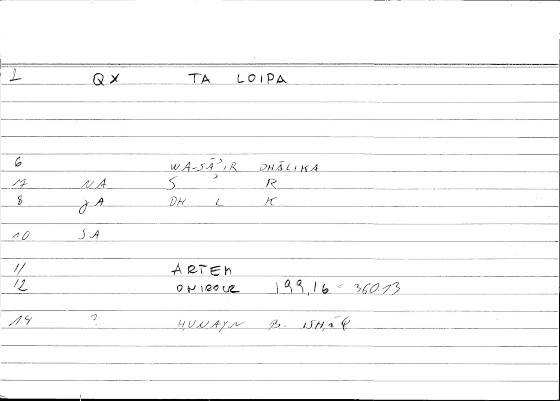 1 QX TA LOIPA
6 WA-SĀ'IR DHĀLIKA
7 NA S ' R
8 gA DH L K
10 SA
11 ARTEM
12 ONIROCR 199,16 = 360.13
14 ? HUNAYN B. ISḤĀQ